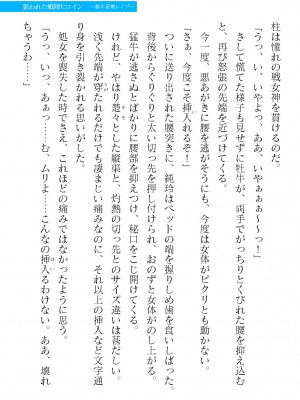 狙われた戦隊ヒロイン ～森の妖精レイプ～
柱は憧れの戦女神を貫けるのだ。
「うっ、いっ、いやっ、ああ、いやぁぁぁ～っ！」
さして慌てた様子も見せずに牡牛が、両手でがっちりとくびれた腰を抑え込む
と、再び怒張の先端を近づけてくる。
今一度、悪あがきに腰を逃がそうにも、今度は女体がピクリとも動かない。
「さぁ、今度こそ挿入れるぞ！」
ついに送り出された腰突きに、純玲はベッドの端を握りしめ歯を食いしばった。
背後からぐりぐりと太い切っ先を押し付けられ、おのずと女体がのし上がる。
猛牛が逃さぬとばかりに腰部を抑えつけ、秘口をこじ開けてくる。
けれど、やはり楚々とした縦渠と、灼熱の切っ先とのサイズ違いは甚だしい。
浅く先端が穿たれるだけでも凄まじい痛みなのに、それ以上の挿入など文字通
り身を引き裂かれる思いがした。
処女を喪失した時でさえ、これほどの痛みではなかったように思う。
「うっ、いっ、あぁっ……む、ムリよ……こんなの挿入るわけない。ああ、壊れ